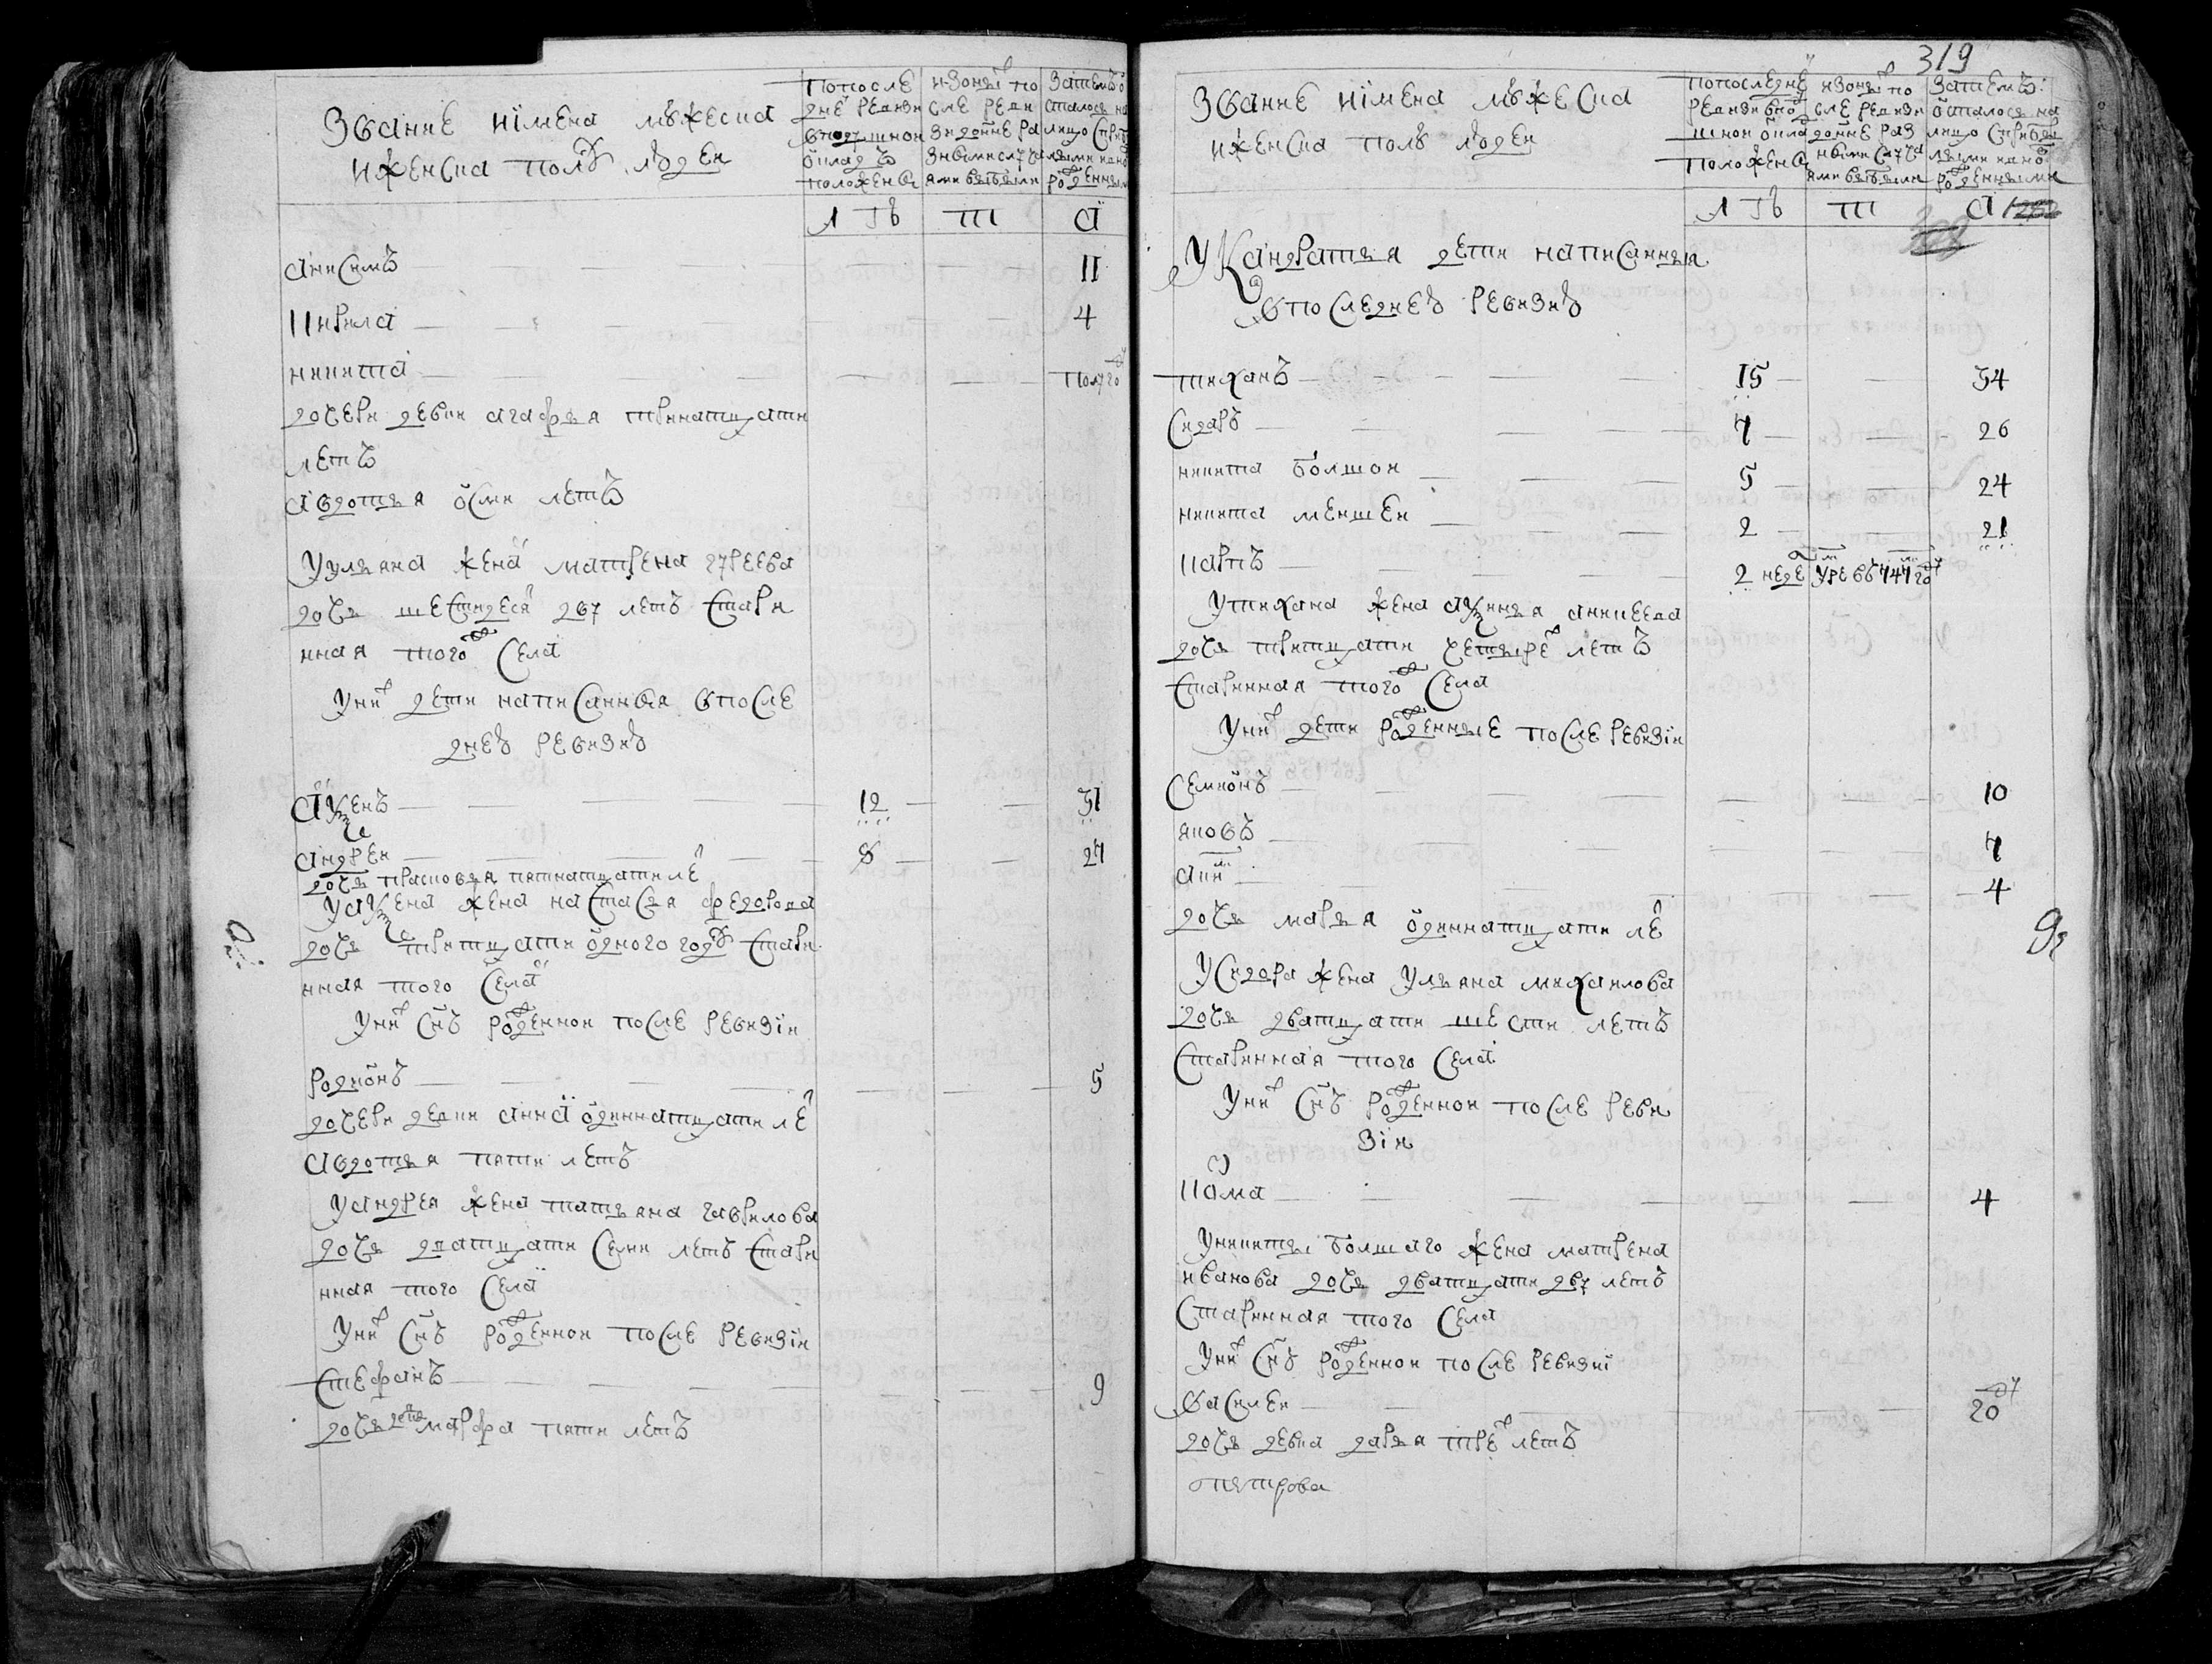 Звание иимена мужеска
иженска полу людеи
попосле
дней ревизи
вподушнои
окладъ
положен.
изоных по
сле реви
зи до ныне ра
зными случа
ями выбыли
затемъ о
сталось на
лицо сприб
лыми ивно
рожденными
ЛѢТЪ
анисимъ 11
кирила 4
никита полгоду
дочери девки агафья тринатцати
летъ
авдотья осми летъ
Уульяна жена матрена гуреева
дочь шездесят дву летъ стари
нная того ж села
Уних дети написанныя впосле
днею ревизию
аѯенъ 12 31
андреи 8 27
дочь прасковья пятнатцати ле
Уаѯена жена настасья федорова
дочь тритцати одного году стари
нная того села
Уних снъ рожденнои после ревизiи
родионъ 5
дочери девки анна одиннатцати ле
авдотья пяти летъ
Уандрея жена татьяна гаврилова
дочь дватцати семи летъ стари
нная того села
Уних снъ рожденнои после ревизiи
стефанъ 9
дочь девка марфа пяти летъ
319
Звание иимена мужеска
иженска полу людеи
попоследней
ревизи впод
шнои окла
положен.
изоных по
сле ревизи
доныне раз
ными случа
ями выбыли
затемъ
осталось на
лицо сприбы
лыми ивно
рожденными
ЛѢТЪ
Укандратья дети написанныя
впоследнею ревизию
тиханъ 15 34
сидаръ 7 26
никита болшои 5 24
никита меншеи 2 21
карпъ 2 недел умре въ 747 году
Утихана жена аѯинья аникеева
дочь тритцати четырех летъ
старинная того ж села
Уних дети рожденные после ревизiи
семионъ 10
яковъ 7
аки 4
дочь марья одиннатцати ле
Усидора жена ульяна михаилова
дочь дватцати шести летъ
старинная того села
Уних снъ рожденнои после реви
зiи
кома 4
Уникиты болшаго жена матрена
иванова дочь дватцати дву летъ
старинная того села
Уних снъ рожденнои после ревизиi
василеи году
дочь девка дарья трех летъ
опетрова